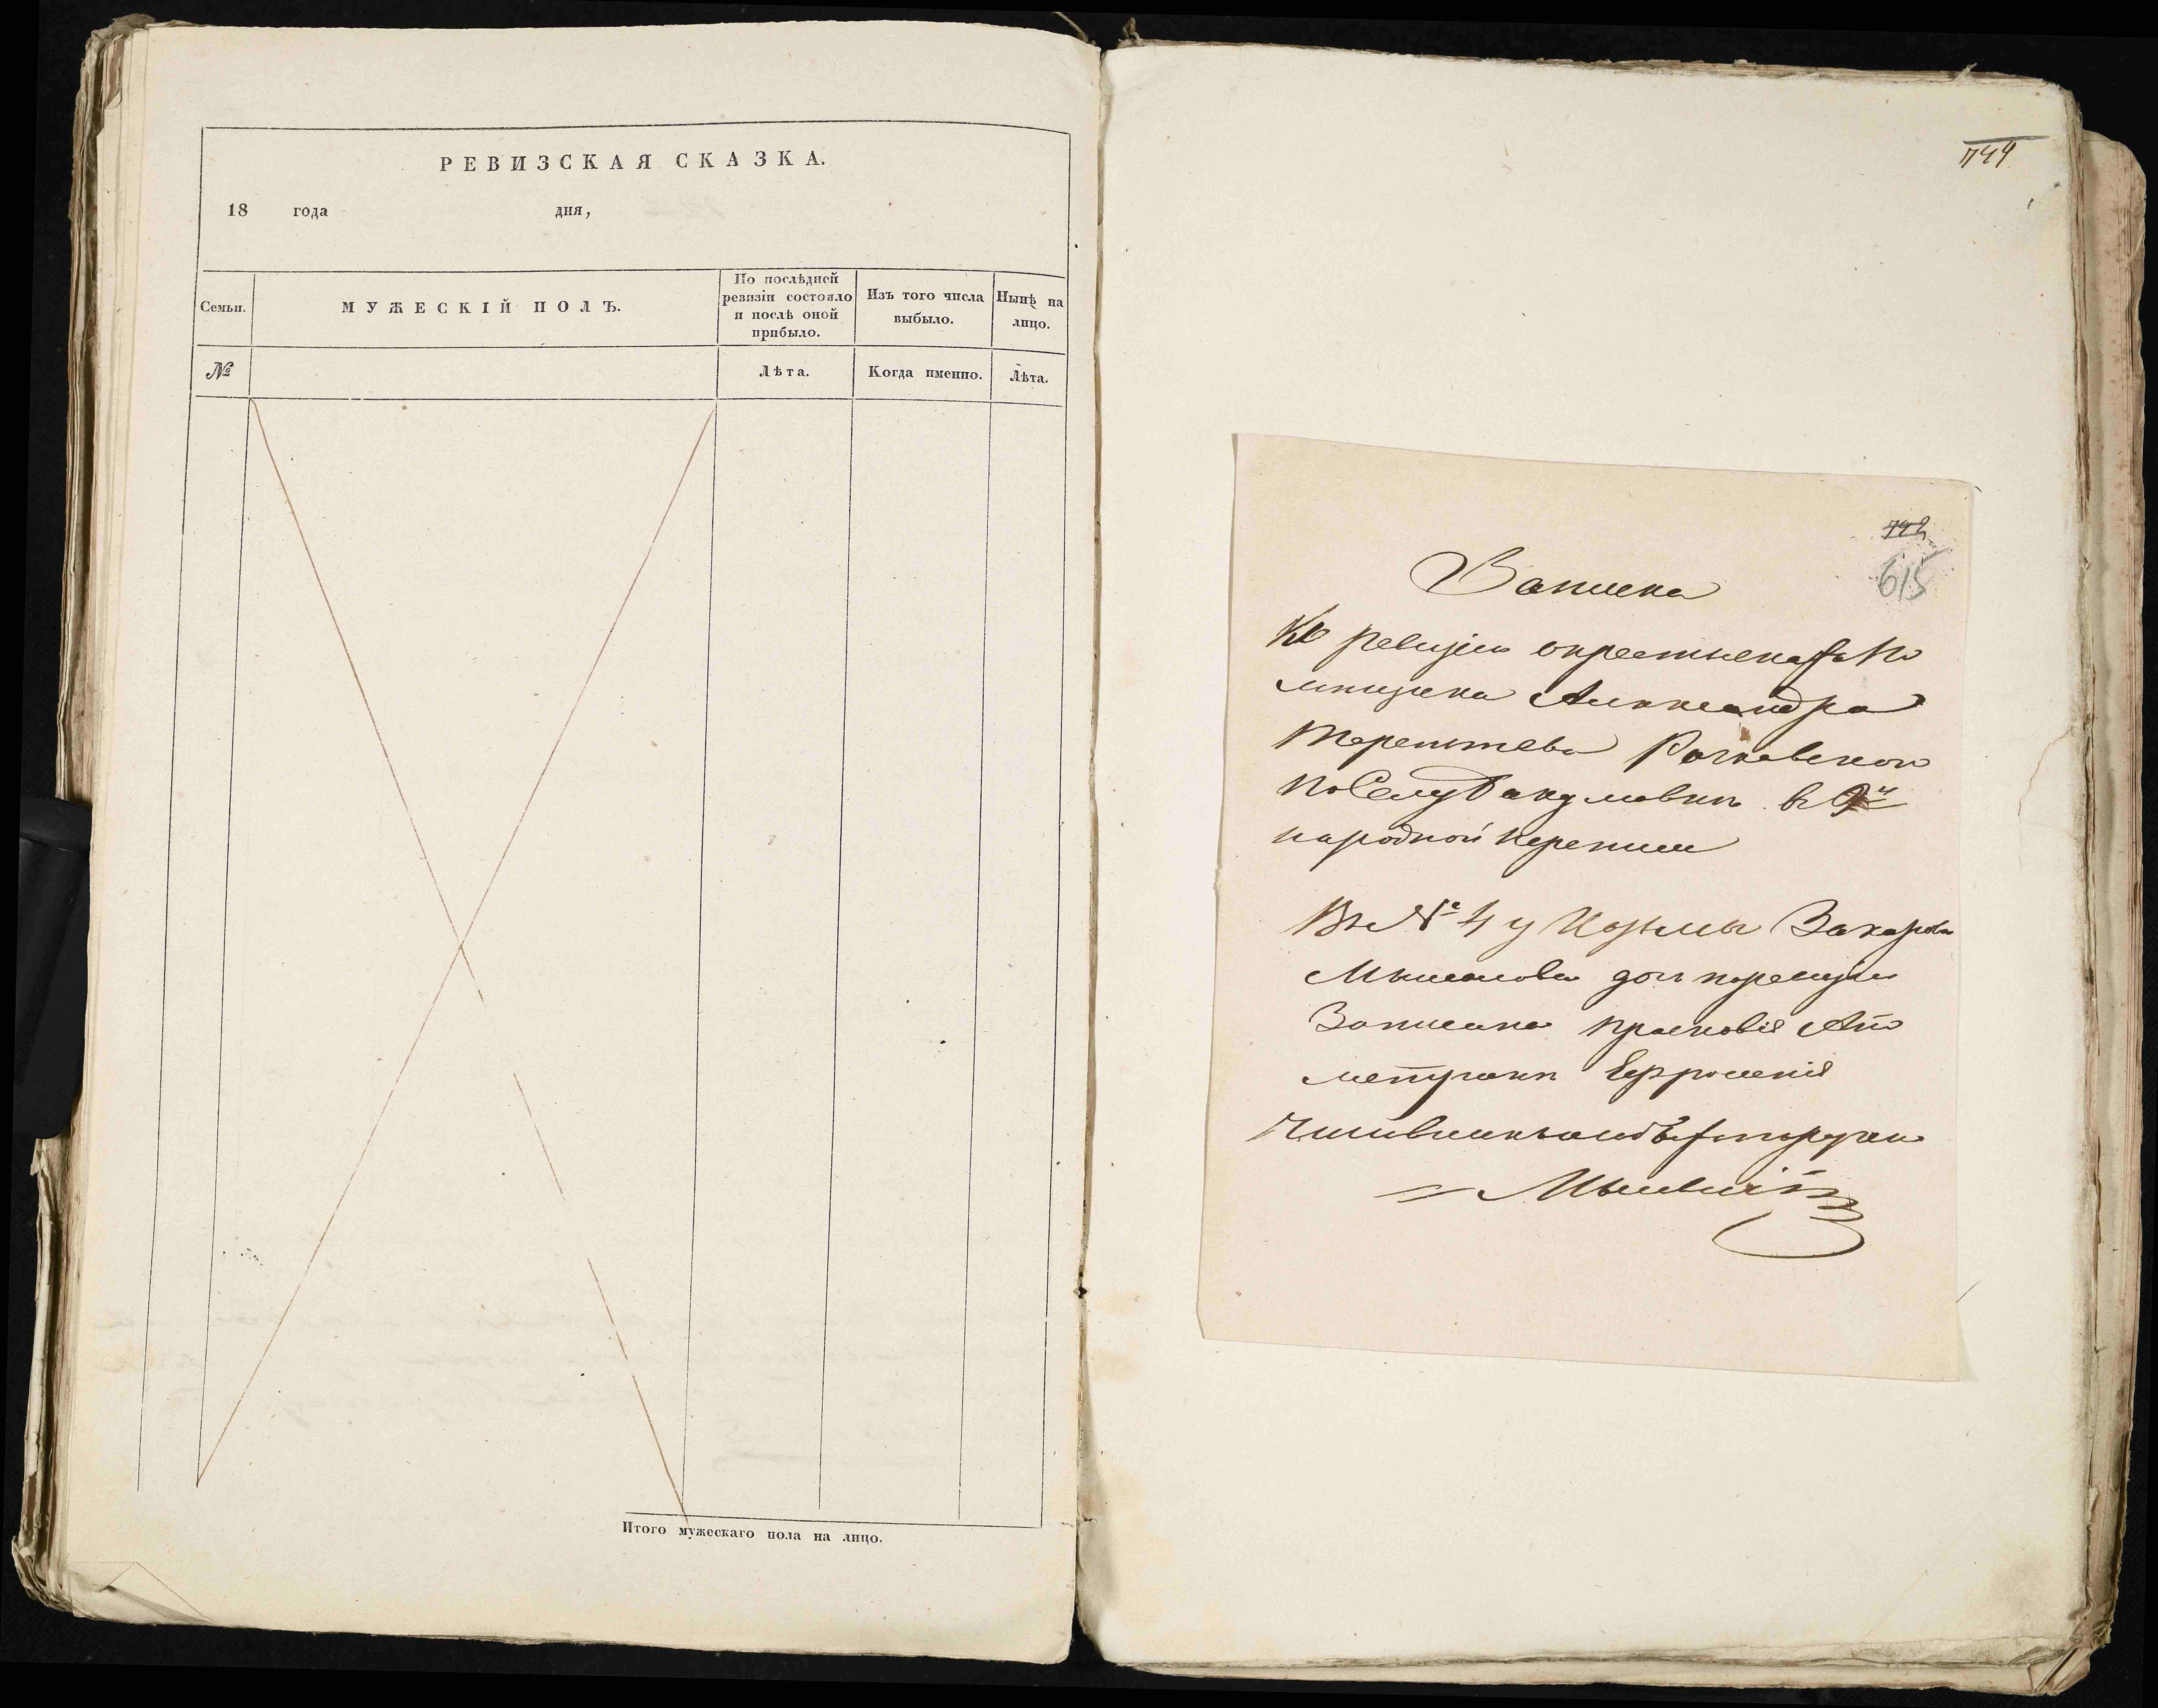 РЕВИЗСКАЯ СКАЗКА.
18 года дня,
Семьи.
МУЖЕСКІЙ ПОЛЪ.
По послѣдней
ревизіи состояло
и послѣ оной
прибыло.
Изъ того числа
выбыло.
Нынѣ на
лицо.
№
Лѣта.
Когда именно.
Лѣта.
Итого мужескаго пола на лицо.
744
742
615
Записка
Къ ревизіи о крестьянахъ По
мпщика Александра
Терентьева
по Селу в 9й
народной переписи
Въ № 4 у Козьмы Захарова
дочь по ревизіи
Записана Прасковія А по
метрикам Ефросенія